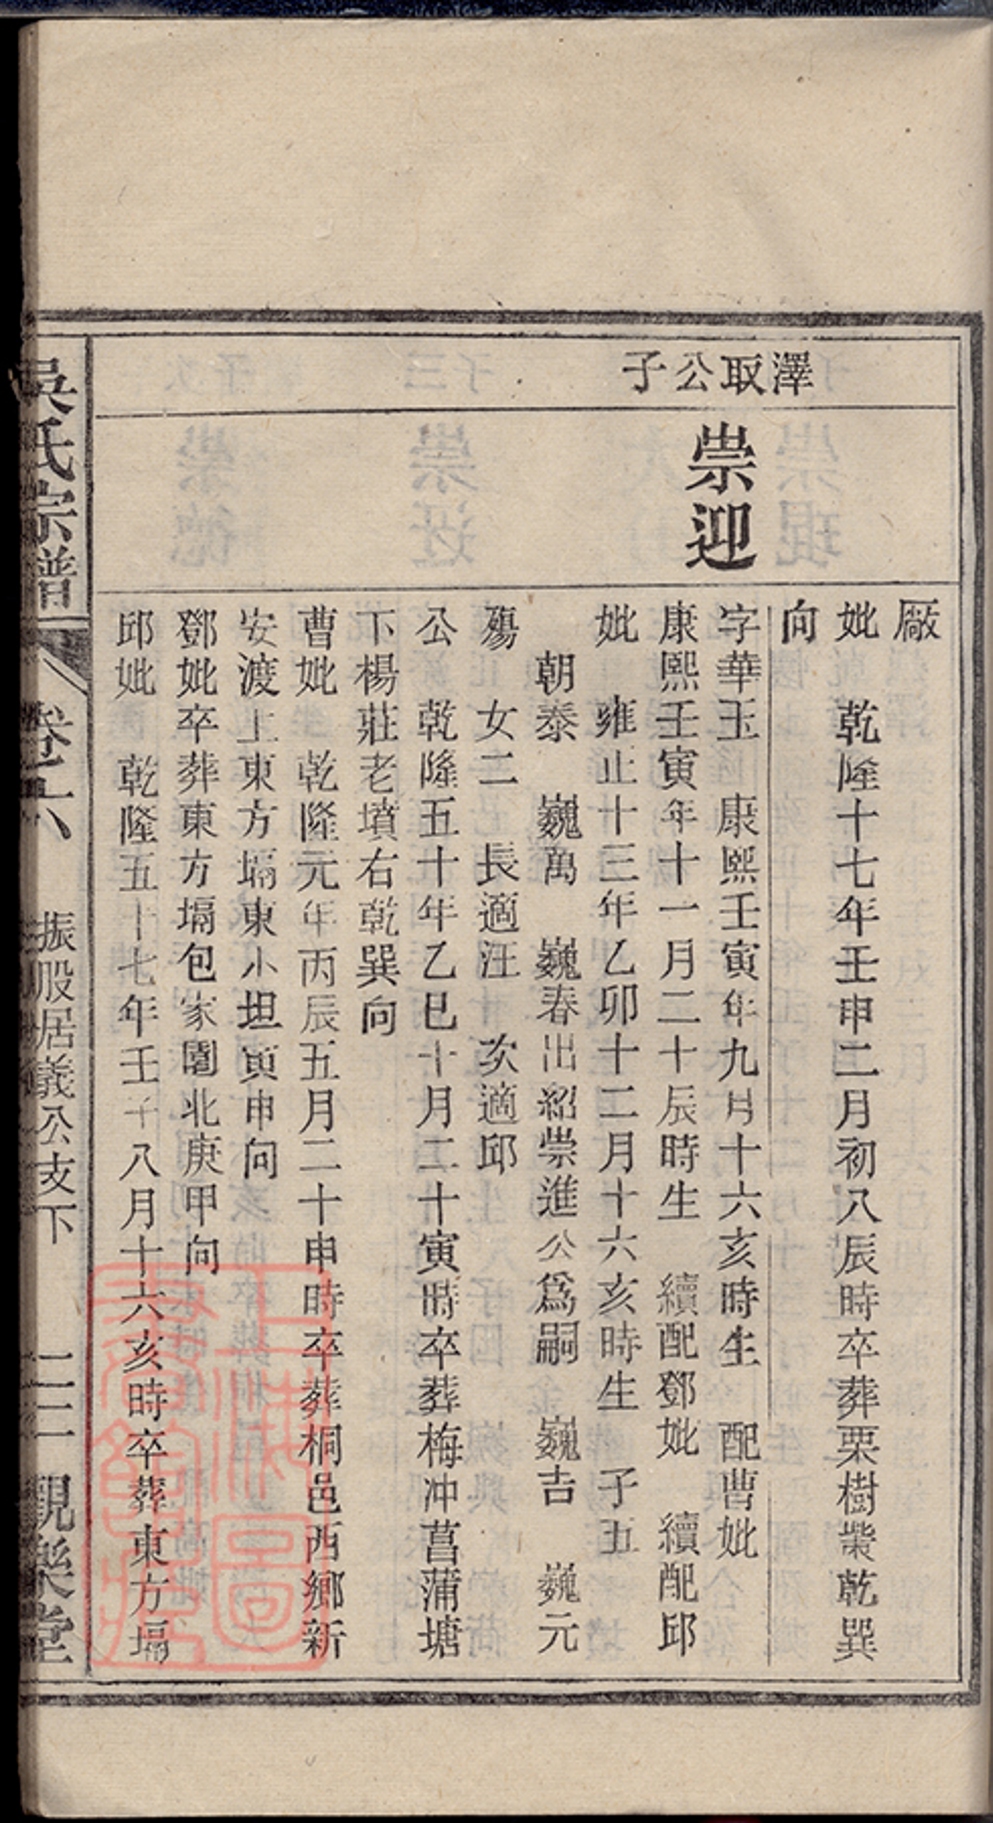 澤取公子
崇迎
厰
妣　乾隆十七年壬申二月初八辰時卒葬栗樹棠乾巽
向
字華玉　康熙壬寅年九月十六亥時生　配曹妣
康熙壬寅年十一月二十辰時生　續配鄧妣　續配邱
妣　雍正十三年乙卯十二月十六亥時生　子五
朝泰　巍萬　巍春出紹崇進公爲嗣　巍吉　巍元
殤　女二　長適汪　次適邱
公　乾隆五十年乙巳十月二十寅時卒葬梅冲菖蒲塘
下楊莊老墳右乾巽向
曹妣　乾隆元年丙辰五月二十申時卒葬桐邑西鄉新
安渡上東方塥東小坦寅申向
鄧妣卒葬東方塥包家園北庚甲向
邱妣　乾隆五十七年壬子八月十六亥時卒葬東方塥
吳氏宗譜
卷之六
振股居義公支下
二二
親樂堂
上海圖書館藏